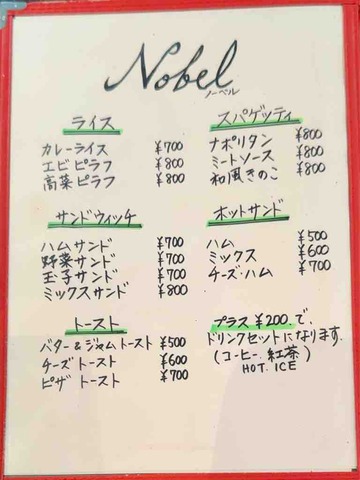 Nobel
ノーベル
ライス
カレーライス ¥700
エビピラフ ¥800
高菜ピラフ ¥800
スパゲッティ
ナポリタン ¥800
ミートソース ¥800
和風きのこ ¥800
サンドウィッチ
ハムサンド ¥700
野菜サンド ¥700
玉子サンド ¥700
ミックスサンド ¥800
ホットサンド
ハム ¥500
ミックス ¥600
チーズ・ハム ¥700
トースト
バター&ジャムトースト ¥500
チーズトースト ¥600
ピザトースト ¥700
プラス ¥200 で、
ドリンクセットになります。
(コーヒー、紅茶)
HOT. ICE